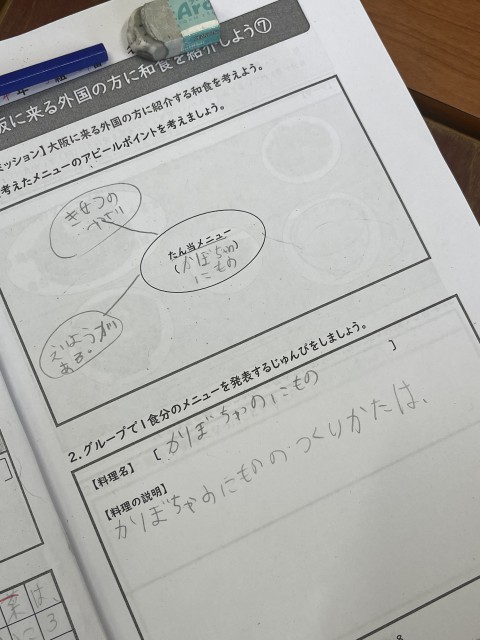 Arc
阪に来る外国の方に和食を紹介しよう⑦
ッション】大阪に来る外国の方に紹介する和食を考えよう。
考えたメニューのアピールポイントを考えましょう。
きせつの
たん当メニュー
(かぼちゃの
にもの
えいようが
ある。
2.グループで1食分のメニューを発表するじゅんびをしましょう。
【料理名】 [ かぼちゃのにもの ]
【料理の説明】
かぼちゃのにものの つくりかたは、
菜は、